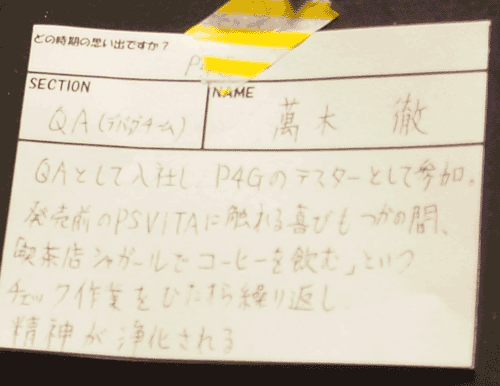 どの時期の思い出ですか?
P4
SECTION
NAME
QA(デバッグチーム)
萬木 徹
QAとして入社し、P4Gのテスターとして参加。
発売前のPSVITAに触れる喜びもつかの間、
「喫茶店シャガールでコーヒーを飲む」という
チェック作業をひたすら繰り返し
精神が浄化される